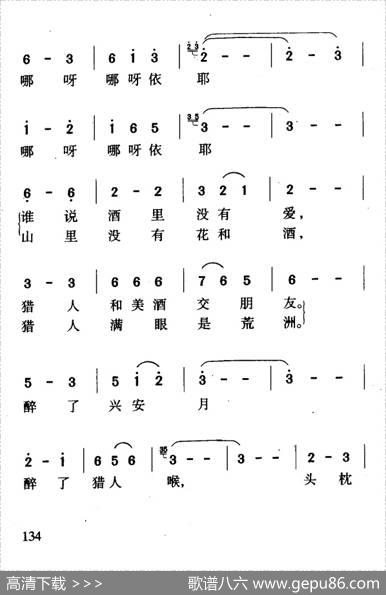 6 - 3 | 6 i 3 | 2 3 2 - - | 2 - 3 |
哪 呀 哪呀依 耶
i - 2 | i 6 5 | 3 5 3 - - | 3 - - |
哪 呀 哪呀依 耶
6 - 6 | 2 - 2 | 3 2 1 | 2 - - |
谁 说 酒 里 没有 爱,
山 里 没 有 花和 酒,
3 - 3 | 6 6 6 | 7 6 5 | 6 - - |
猎 人 和美酒 交 朋 友。
猎 人 满 眼 是 荒 洲。
5 - 3 | 5 i 2 | 3 - - | 3 - - |
醉 了 兴安 月
2 - i | 6 5 6 | 3 - - | 3 - - | 2 - 3 |
醉 了 猎人 喉, 头 枕
134
高清下载 >>> 歌谱八六 www.gepu86.com